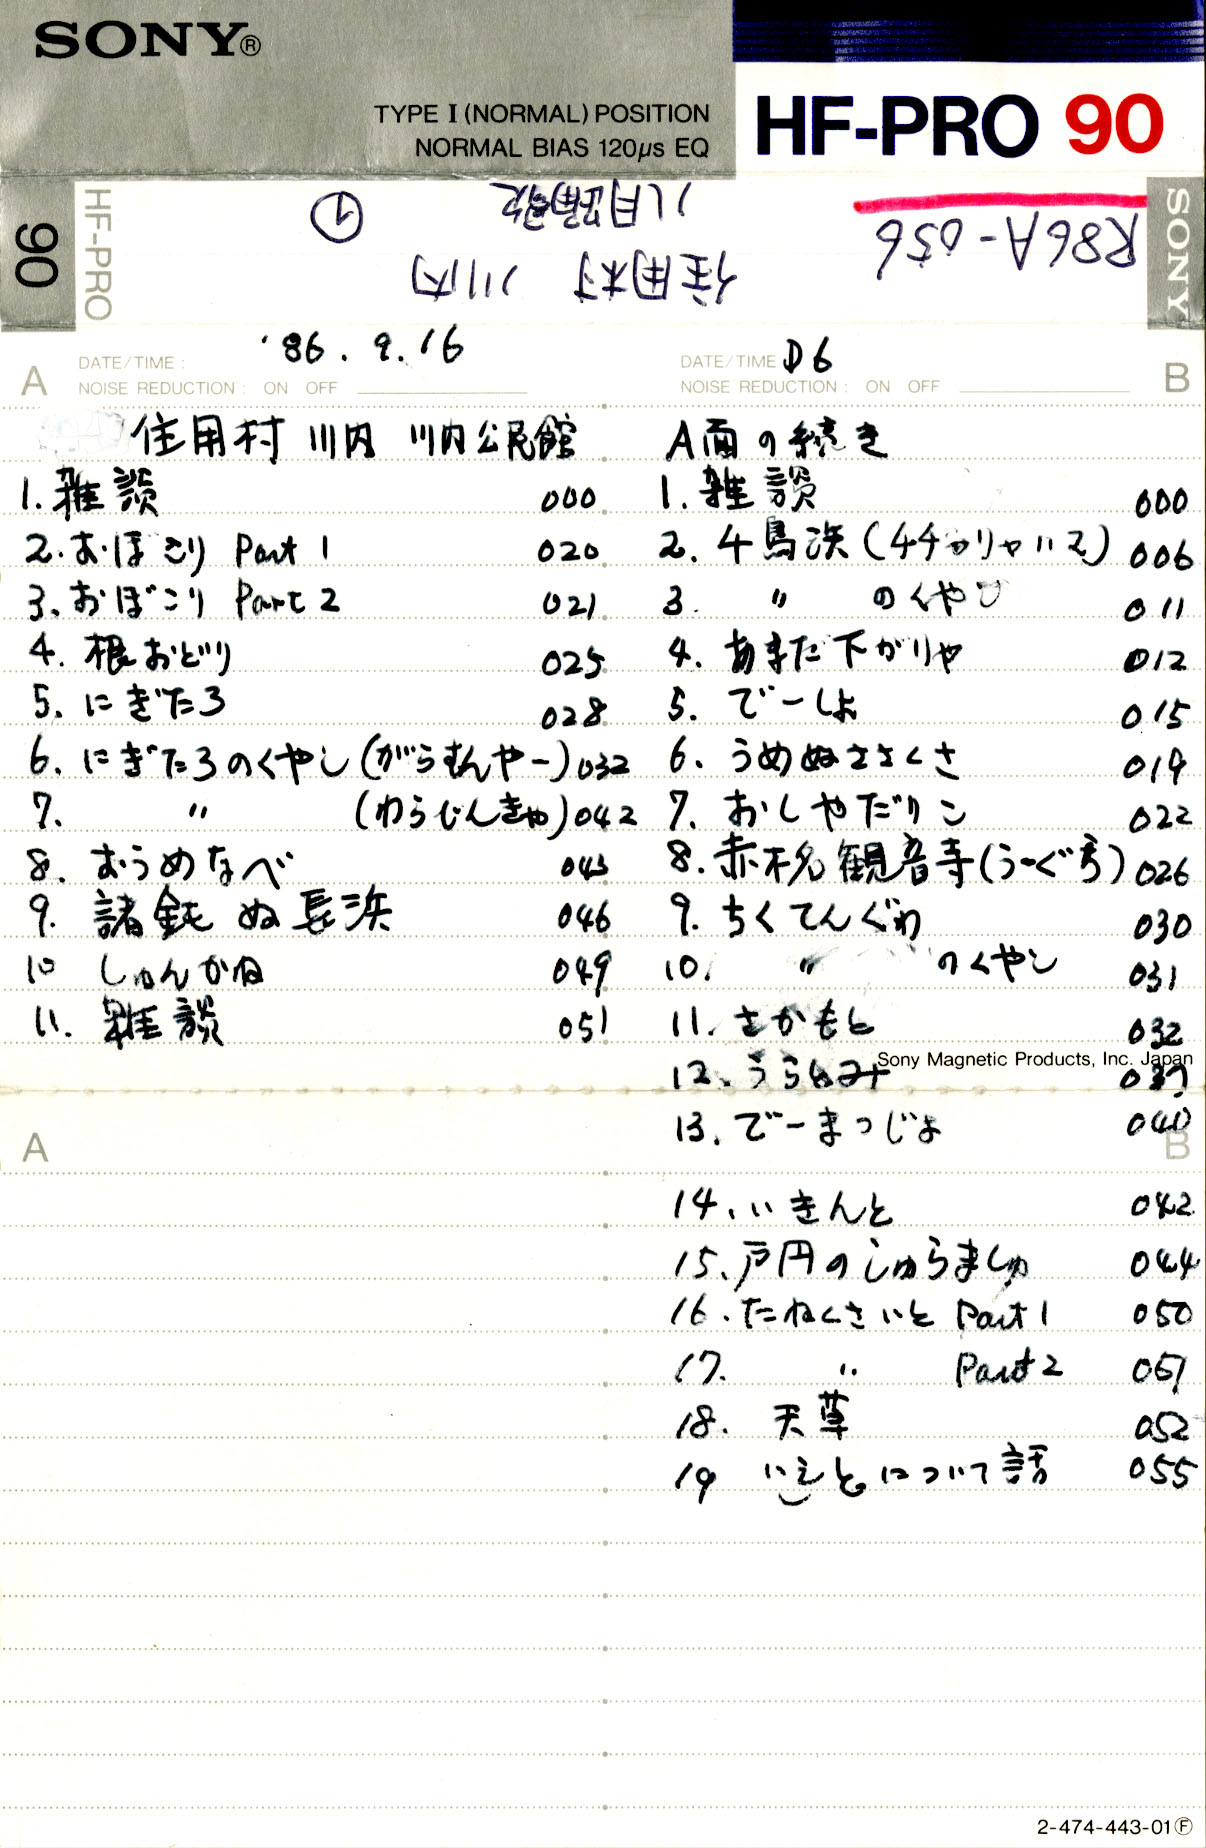 SONY®
TYPE I (NORMAL) POSITION
NORMAL BIAS 120μs EQ
HF-PRO 90
90
HF-PRO
R86A-056
住用村 川内
八月踊歌
①
SONY
A
DATE/TIME : '86.9.16
NOISE REDUCTION : ON OFF
住用村 川内 川内公民館
1. 雑談 000
2. おぼこり Part 1 020
3. おぼこり Part 2 021
4. 根おどり 025
5. にぎたろ 028
6. にぎたろのくやし (がらむんやー) 032
7. 〃 (わらじんきゃ) 042
8. おうめなべ 043
9. 諸鈍ぬ長浜 046
10 しゅんかね 049
11. 雑談 051
B
DATE/TIME D6
NOISE REDUCTION : ON OFF
A面の続き
1. 雑談 000
2. 千鳥浜 (チヂュリャハマ) 006
3. 〃 のくやし 011
4. あまだ下がりや 012
5. でーしょ 015
6. うめぬささくさ 019
7. おしやだりこ 022
8. 赤木名観音寺 026
9. ちくてんぐゎ 030
10. 〃 のくやし 031
11. さかもと 032
12. うらとみ 037
Sony Magnetic Products, Inc. Japan
13. でーまつじょ 040
A
B
14. いきんと 042
15. 戸円のしゅらましゅ 044
16. たねくさいと Part 1 050
17. 〃 Part 2 051
18. 天草 052
19 いえとについて話 055
2-474-443-01Ⓕ